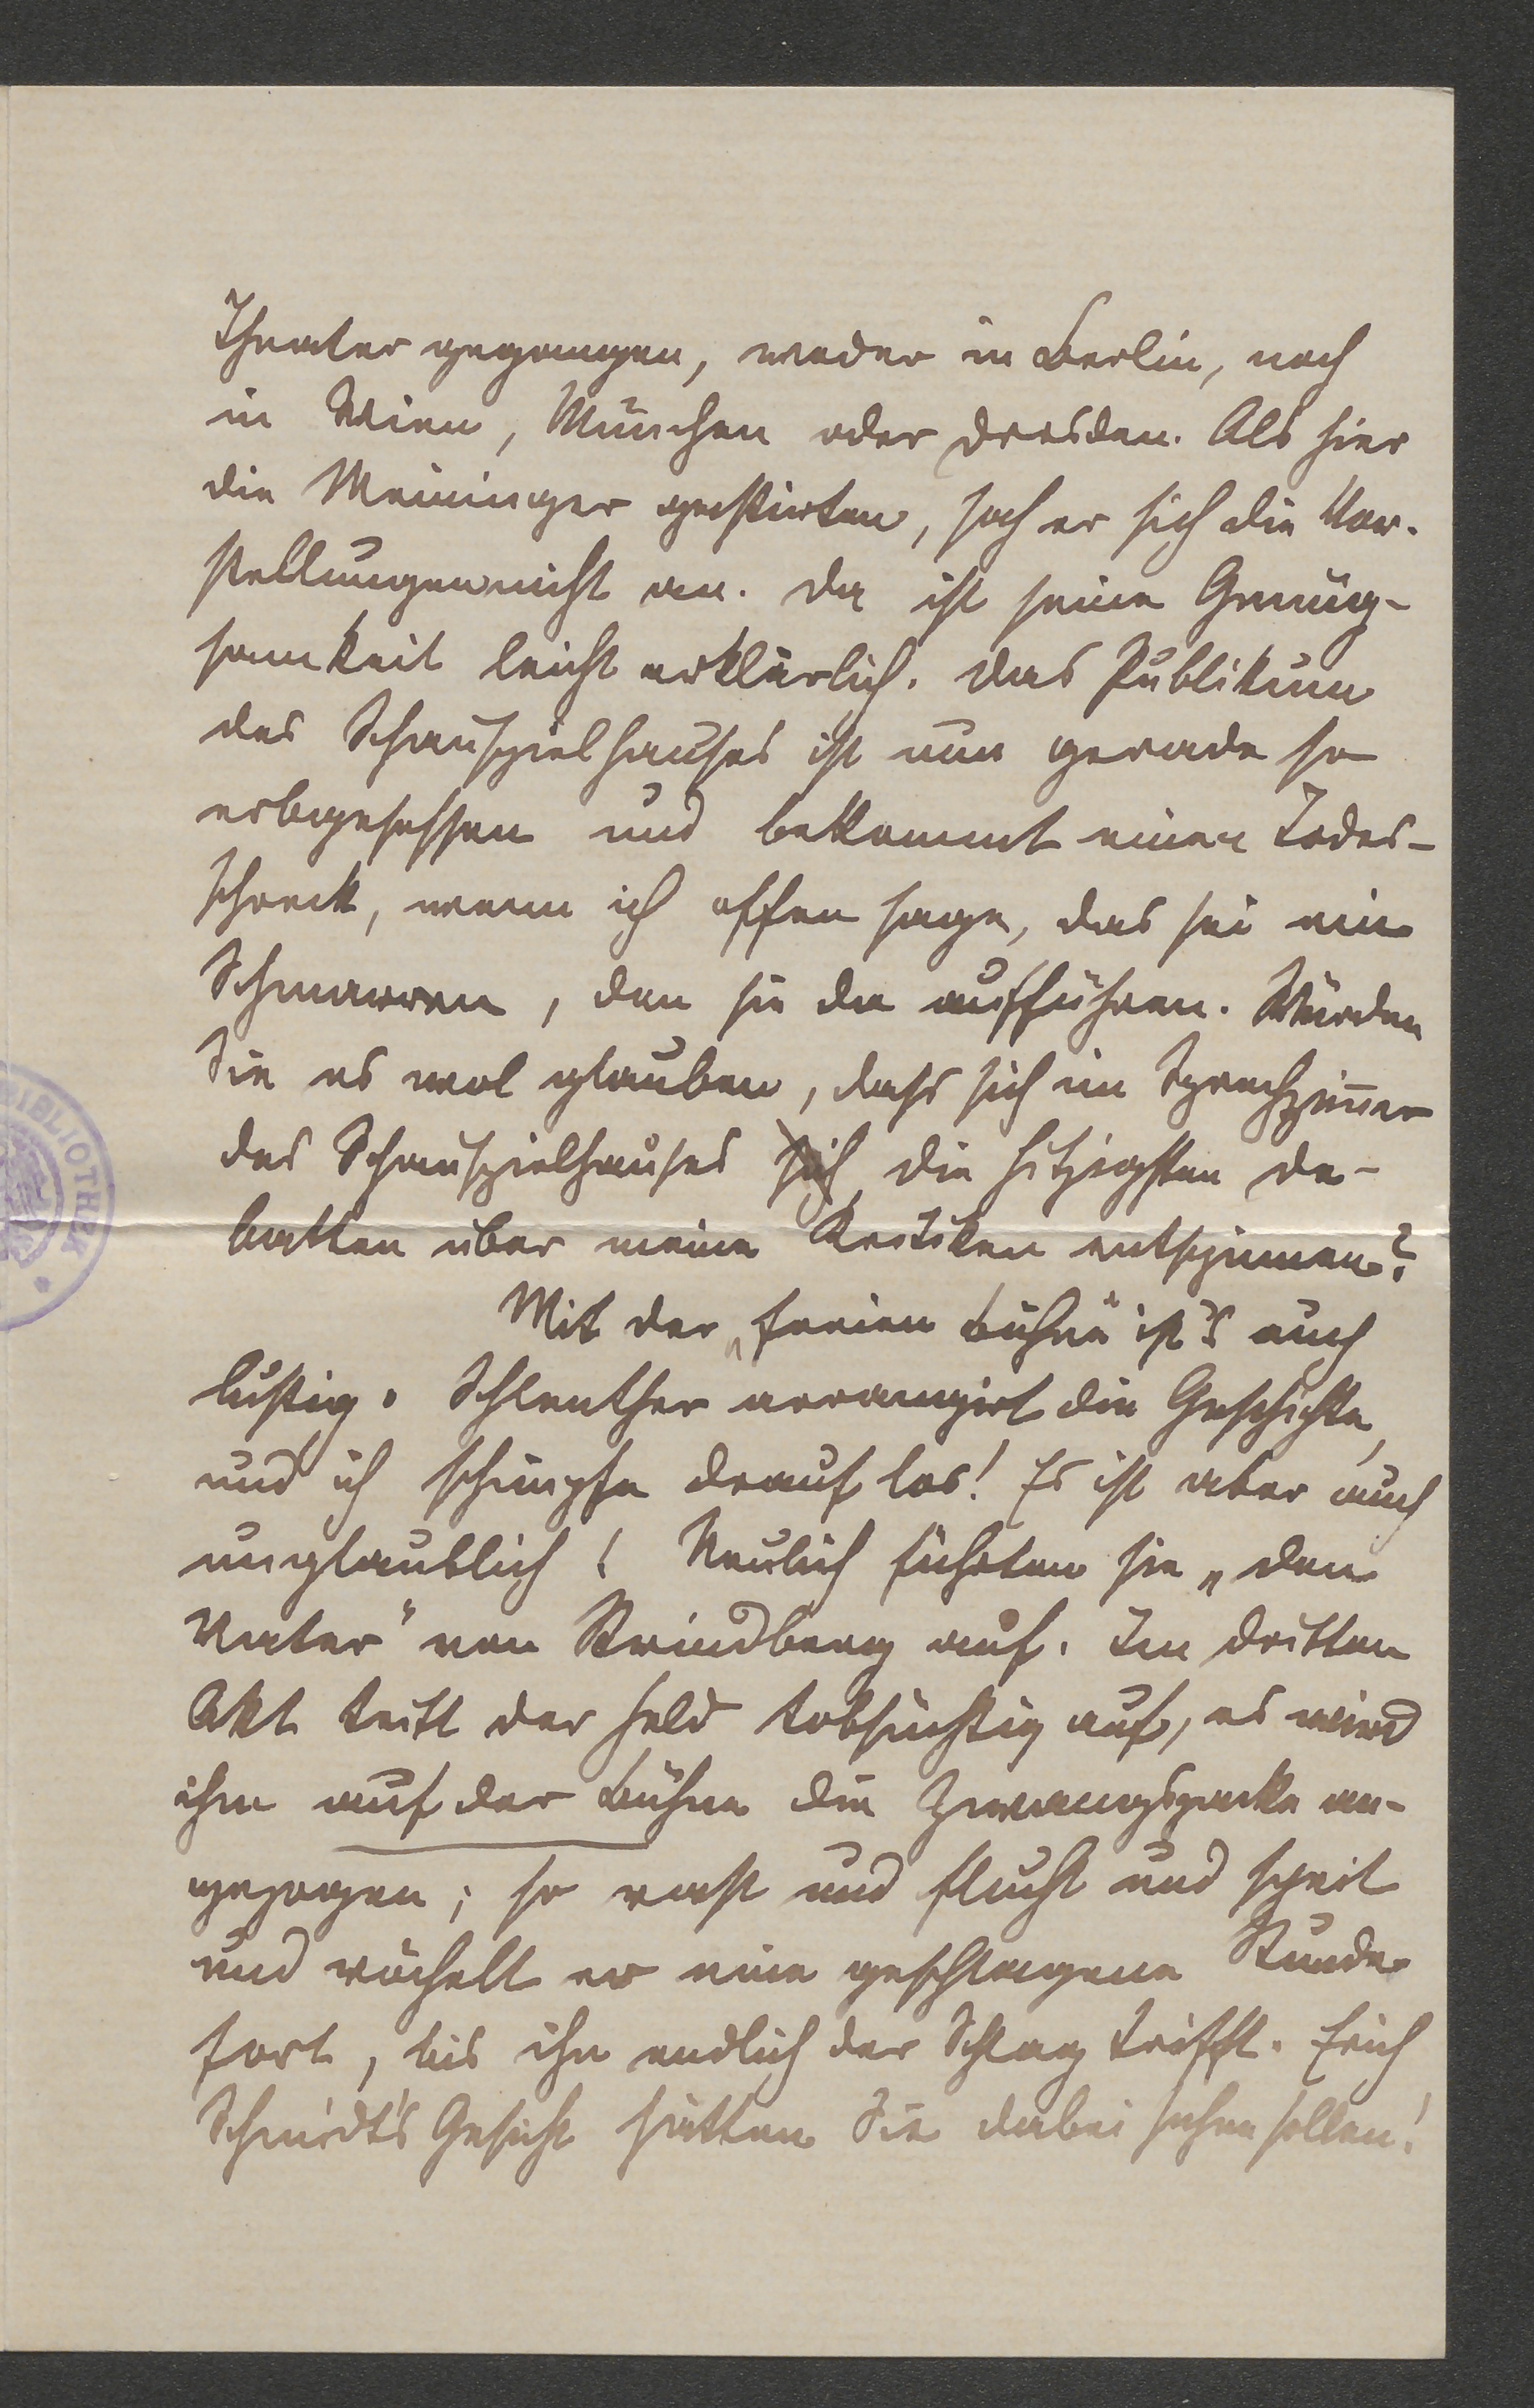 Theater gegangen, weder in Berlin, noch
in Wien, München oder Dresden. Als hier
die Meininger gastirten, sah er sich die Vor-
stellungen nicht an. Da ist seine Genüg-
samkeit leicht erklärlich. Das Publikum
des Schauspielhauses ist nun gerade so
erbgesessen und bekommt einen Todes-
schreck, wenn ich offen sage, das sei ein
Schmarren, den sie da aufführen. Würden
Sie es wol glauben, dass sich im Sprechzimmer
des Schauspielhauses sich die hitzigsten De-
batten über meine Kritiken entspinnen?
Mit der „freien Bühne“ ist's auch
lustig. Schlenther arrangirt die Geschichte,
und ich schimpfe drauf los! Es ist aber auch
unglaublich! Neulich führten sie „den
Vater“ von Strindberg auf. Im dritten
Akt tritt der Held tobsüchtig auf, es wird
ihm auf der Bühne die Zwangsjacke an-
gezogen; so rast und flucht und speit
und röchelt er eine geschlagene Stunde
fort, bis ihn endlich der Schlag trifft. Erich
Schmidt's Gesicht hätten Sie dabei sehen sollen!
BIBLIOTHEK